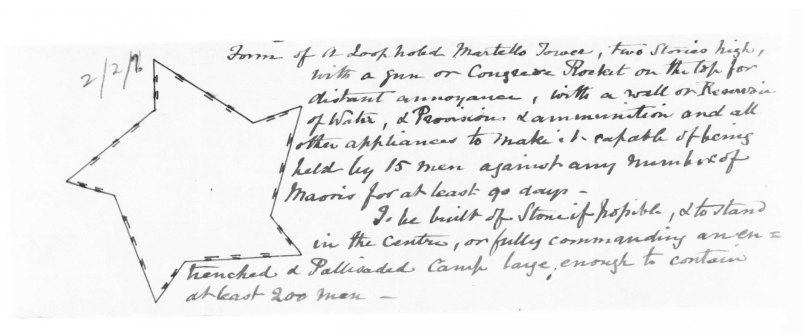 2/2/6
Form of a Loopholed Martello Tower, two stories high,
with a gun or Congreve Rocket on the top for
distant annoyance, with a well or Reservoir
of Water, & Provisions & ammunition and all
other appliances to make it capable of being
held by 15 men against any number of
Maoris for at least 90 days –
To be built of Stone if possible, & to stand
in the centre, or fully commanding an en=
trenched & Pallisaded Camp large enough to contain
at least 200 men –